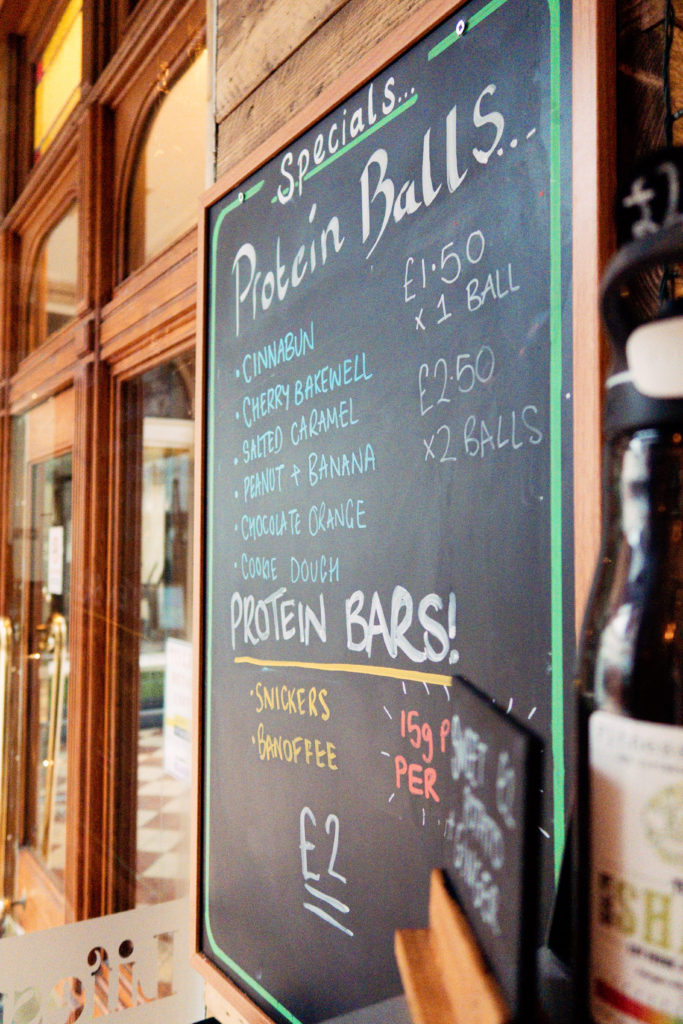 Specials...
Protein Balls...
£1.50
x 1 BALL
£2.50
x2 BALLS
• CINNABUN
• CHERRY BAKEWELL
• SALTED CARAMEL
• PEANUT + BANANA
• CHOCOLATE ORANGE
• COOKIE DOUGH
PROTEIN BARS!
• SNICKERS
• BANOFFEE
15g P
PER
£2
SWEET
GINGER
£2
SH